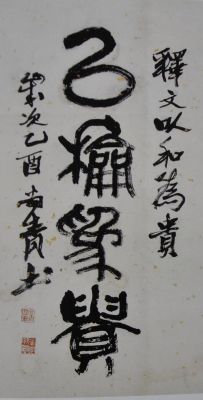 釋文以和為貴
以和為貴
歲次乙酉书